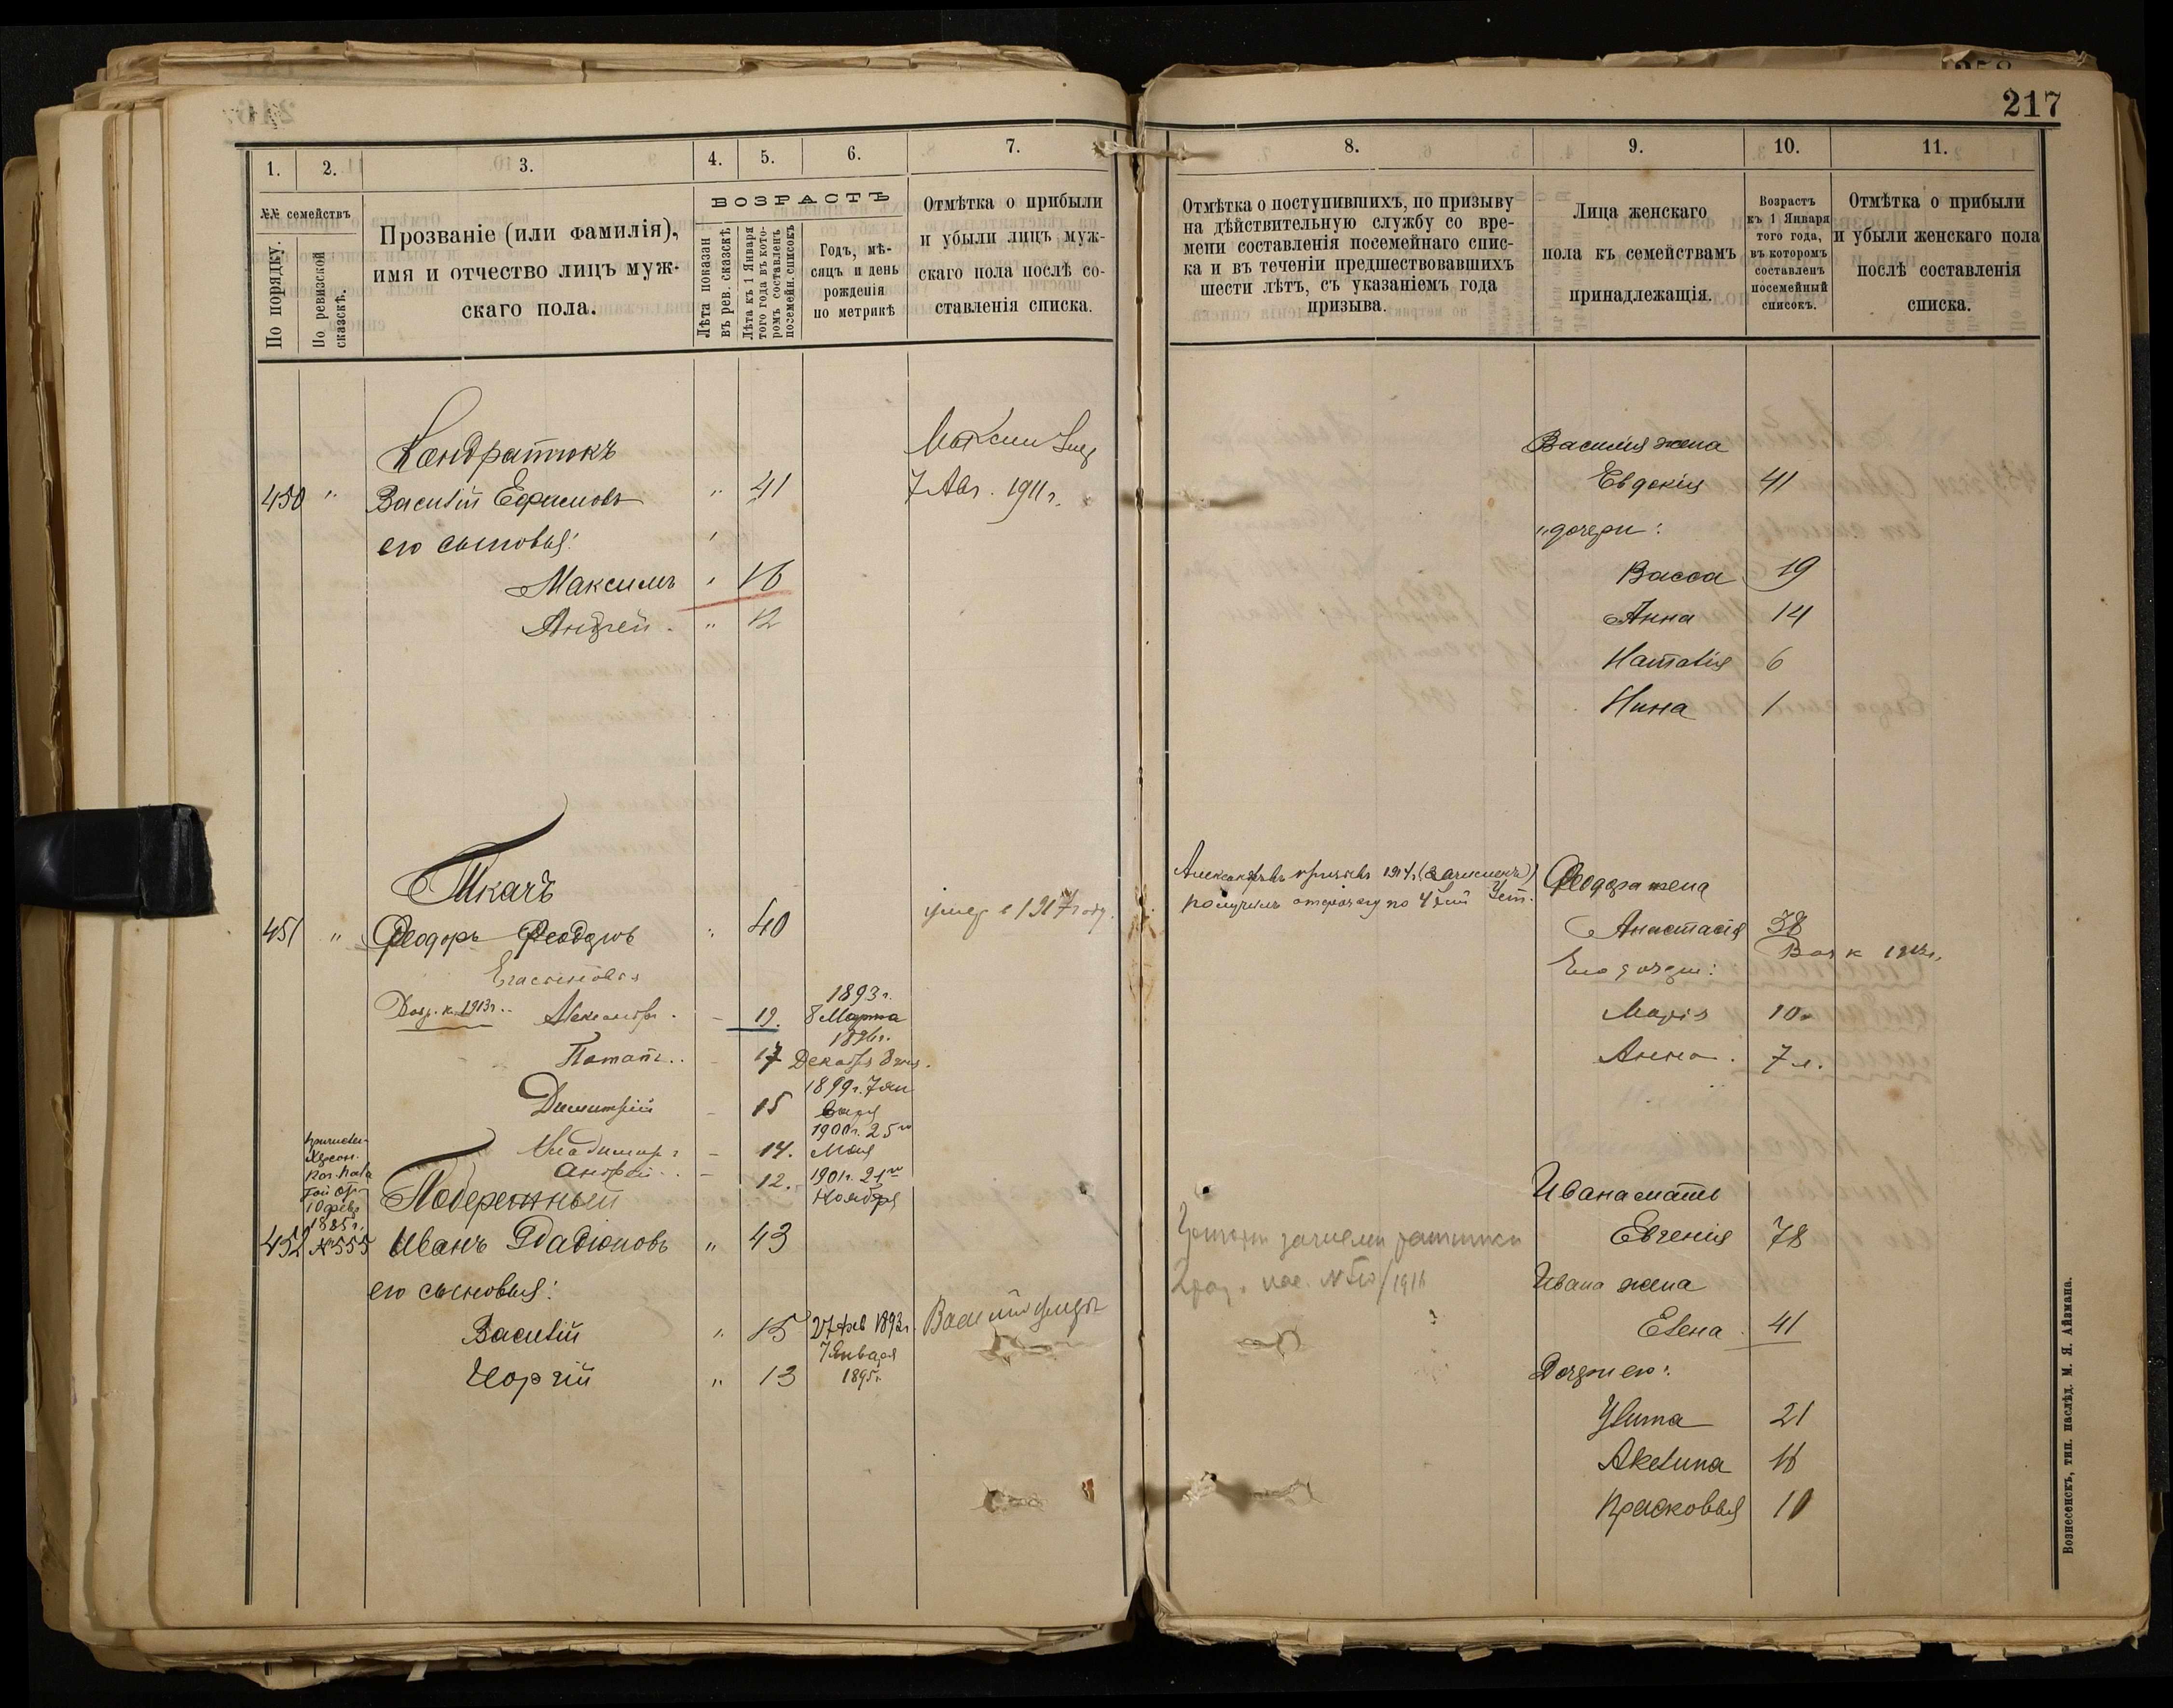 217
1.
2.
3.
4.
5.
6.
7.
8.
9.
10.
11.
№№ семействъ
По порядку.
По ревизской сказскѣ.
Прозваніе (или фамилія),
имя и отчество лицъ муж-
скаго пола.
ВОЗРАСТЪ
Лѣта показан
въ рев. сказскѣ
Лѣта къ 1 Января
того года въ кото-
ромъ составленъ
посемейн. списокъ
Годъ, мѣ-
сяцъ и день
рожденія
по метрикѣ
Отмѣтка о прибыли
и убыли лицъ муж-
скаго пола послѣ со-
ставленія списка.
Отмѣтка о поступившихъ, по призыву
на дѣйствительную службу со вре-
мени составленія посемейнаго спис-
ка и въ теченіи предшествовавшихъ
шести лѣтъ, съ указаніемъ года
призыва.
Лица женскаго
пола къ семействамъ
принадлежащія.
Возрастъ
къ 1 Января
того года,
въ которомъ
составленъ
посемейный
списокъ.
Отмѣтка о прибыли
и убыли женскаго пола
послѣ составленія
списка.
Кондратюкъ
450 " Василій Ефимовъ " 41
7 Авг. 1911 г.
его сыновья:
Максимъ " 16
Андрей " 12
Василія жена
Евдокія 41
" дочери:
Васса 19
Анна 14
Наталія 6
Нина 1
Ткачъ
451 " Феодоръ Феодоровъ " 40
умер в 1917 году.
Его сыновья
Возр. к 1913 г. Александръ - 19. 1893 г. 8 Марта
Потапъ - 17 1896 г. Декабря 8 дня.
Димитрій - 15 1899 г. 7 Января
Владимиръ - 14. 1900 г. 25го Мая
Андрей - 12. 1901 г. 21го Ноября
Александръ призывъ 1914 г. (зачисленъ)
получилъ отсрочку по
Феодора жена
Анастасія 38
Его дочери: Воз к 1913 г.
Марія 10
Анна 7 л.
10 февр
1885 г.
№ 555
Побережный
452 Иванъ Радіоновъ " 43
его сыновья:
Василій " 15 27 фев 1893 г. Василій умеръ
Георгій " 13 7 Января 1895 г.
Ивана мать
Евгенія 78
Ивана жена
Елена 41
Дочери его:
Улита 21
Акелина 16
Прасковья 10
Вознесенскъ, тип. наслѣд. М. Я. Айзмана.